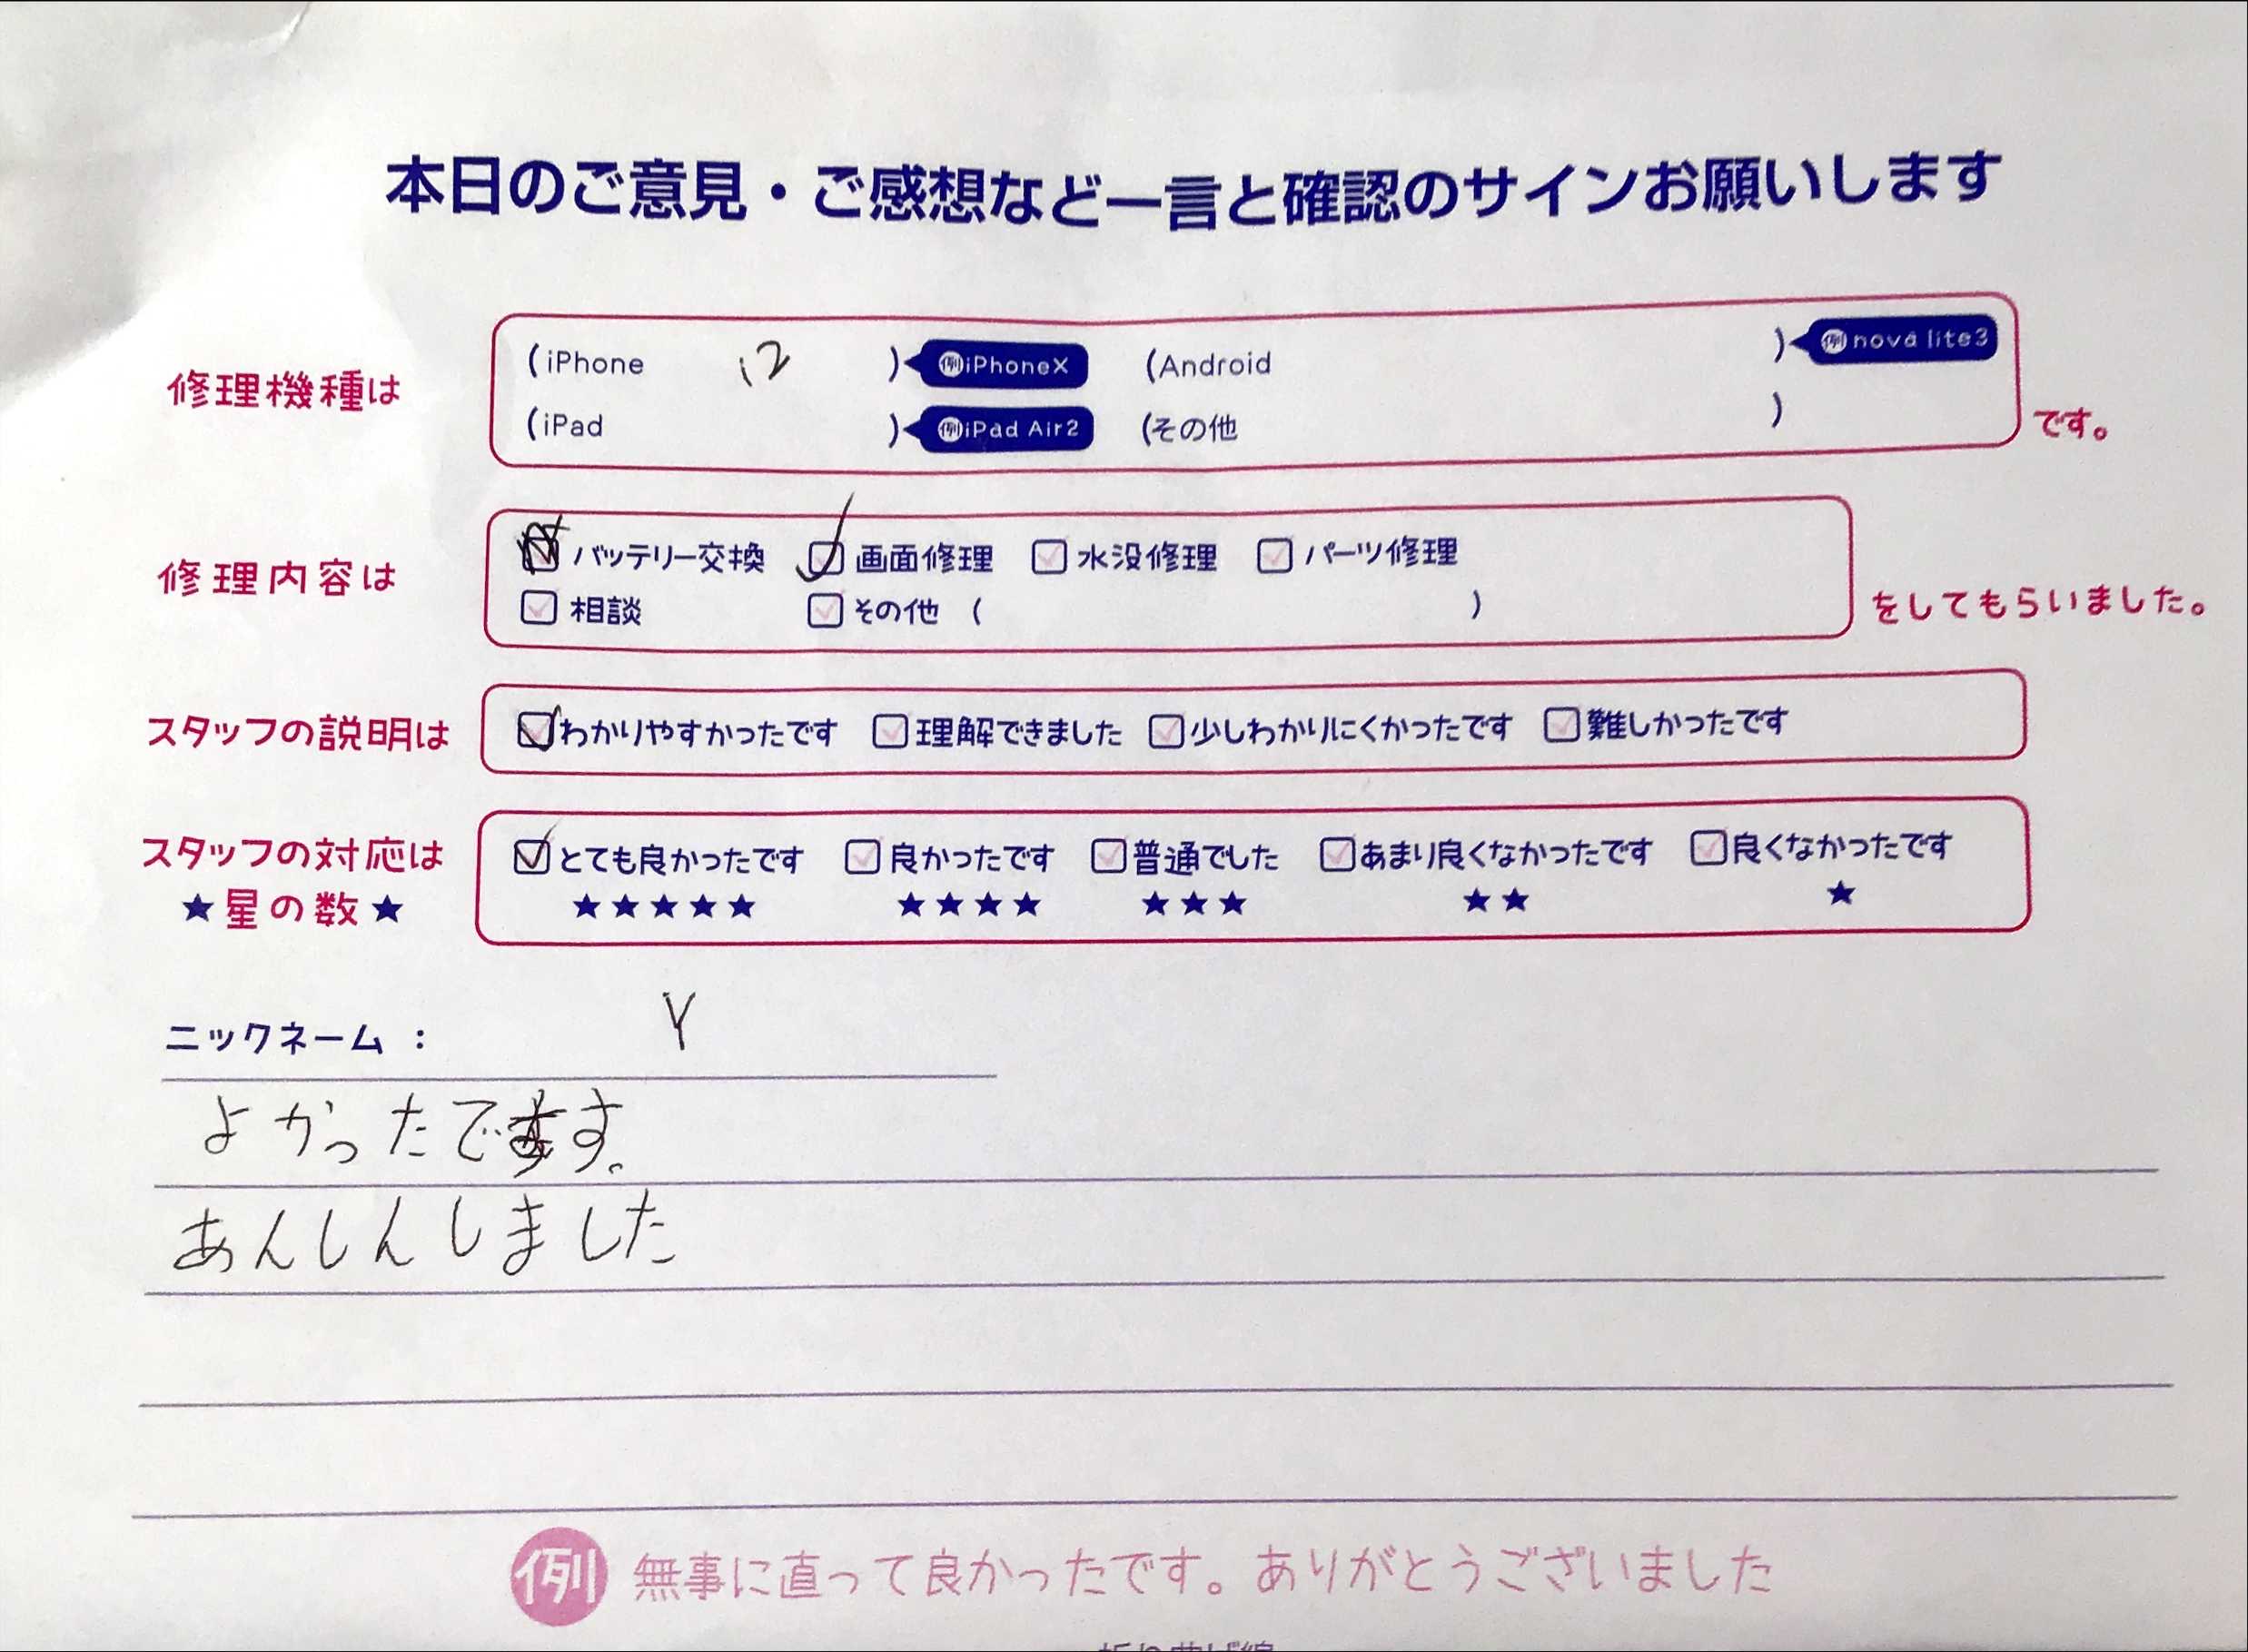 本日のご意見・ご感想など一言と確認のサインお願いします
修理機種は (iPhone 12 ) 例iPhoneX (Android ) 例nova lite3
(iPad ) 例iPad Air2 (その他 ) です。
修理内容は バッテリー交換 画面修理 水没修理 パーツ修理
相談 その他 ( ) をしてもらいました。
スタッフの説明は わかりやすかったです 理解できました 少しわかりにくかったです 難しかったです
スタッフの対応は とても良かったです 良かったです 普通でした あまり良くなかったです 良くなかったです
★星の数★ ★★★★★ ★★★★ ★★★ ★★ ★
ニックネーム : Y
よかったです。
あんしんしました
例 無事に直って良かったです。ありがとうございました